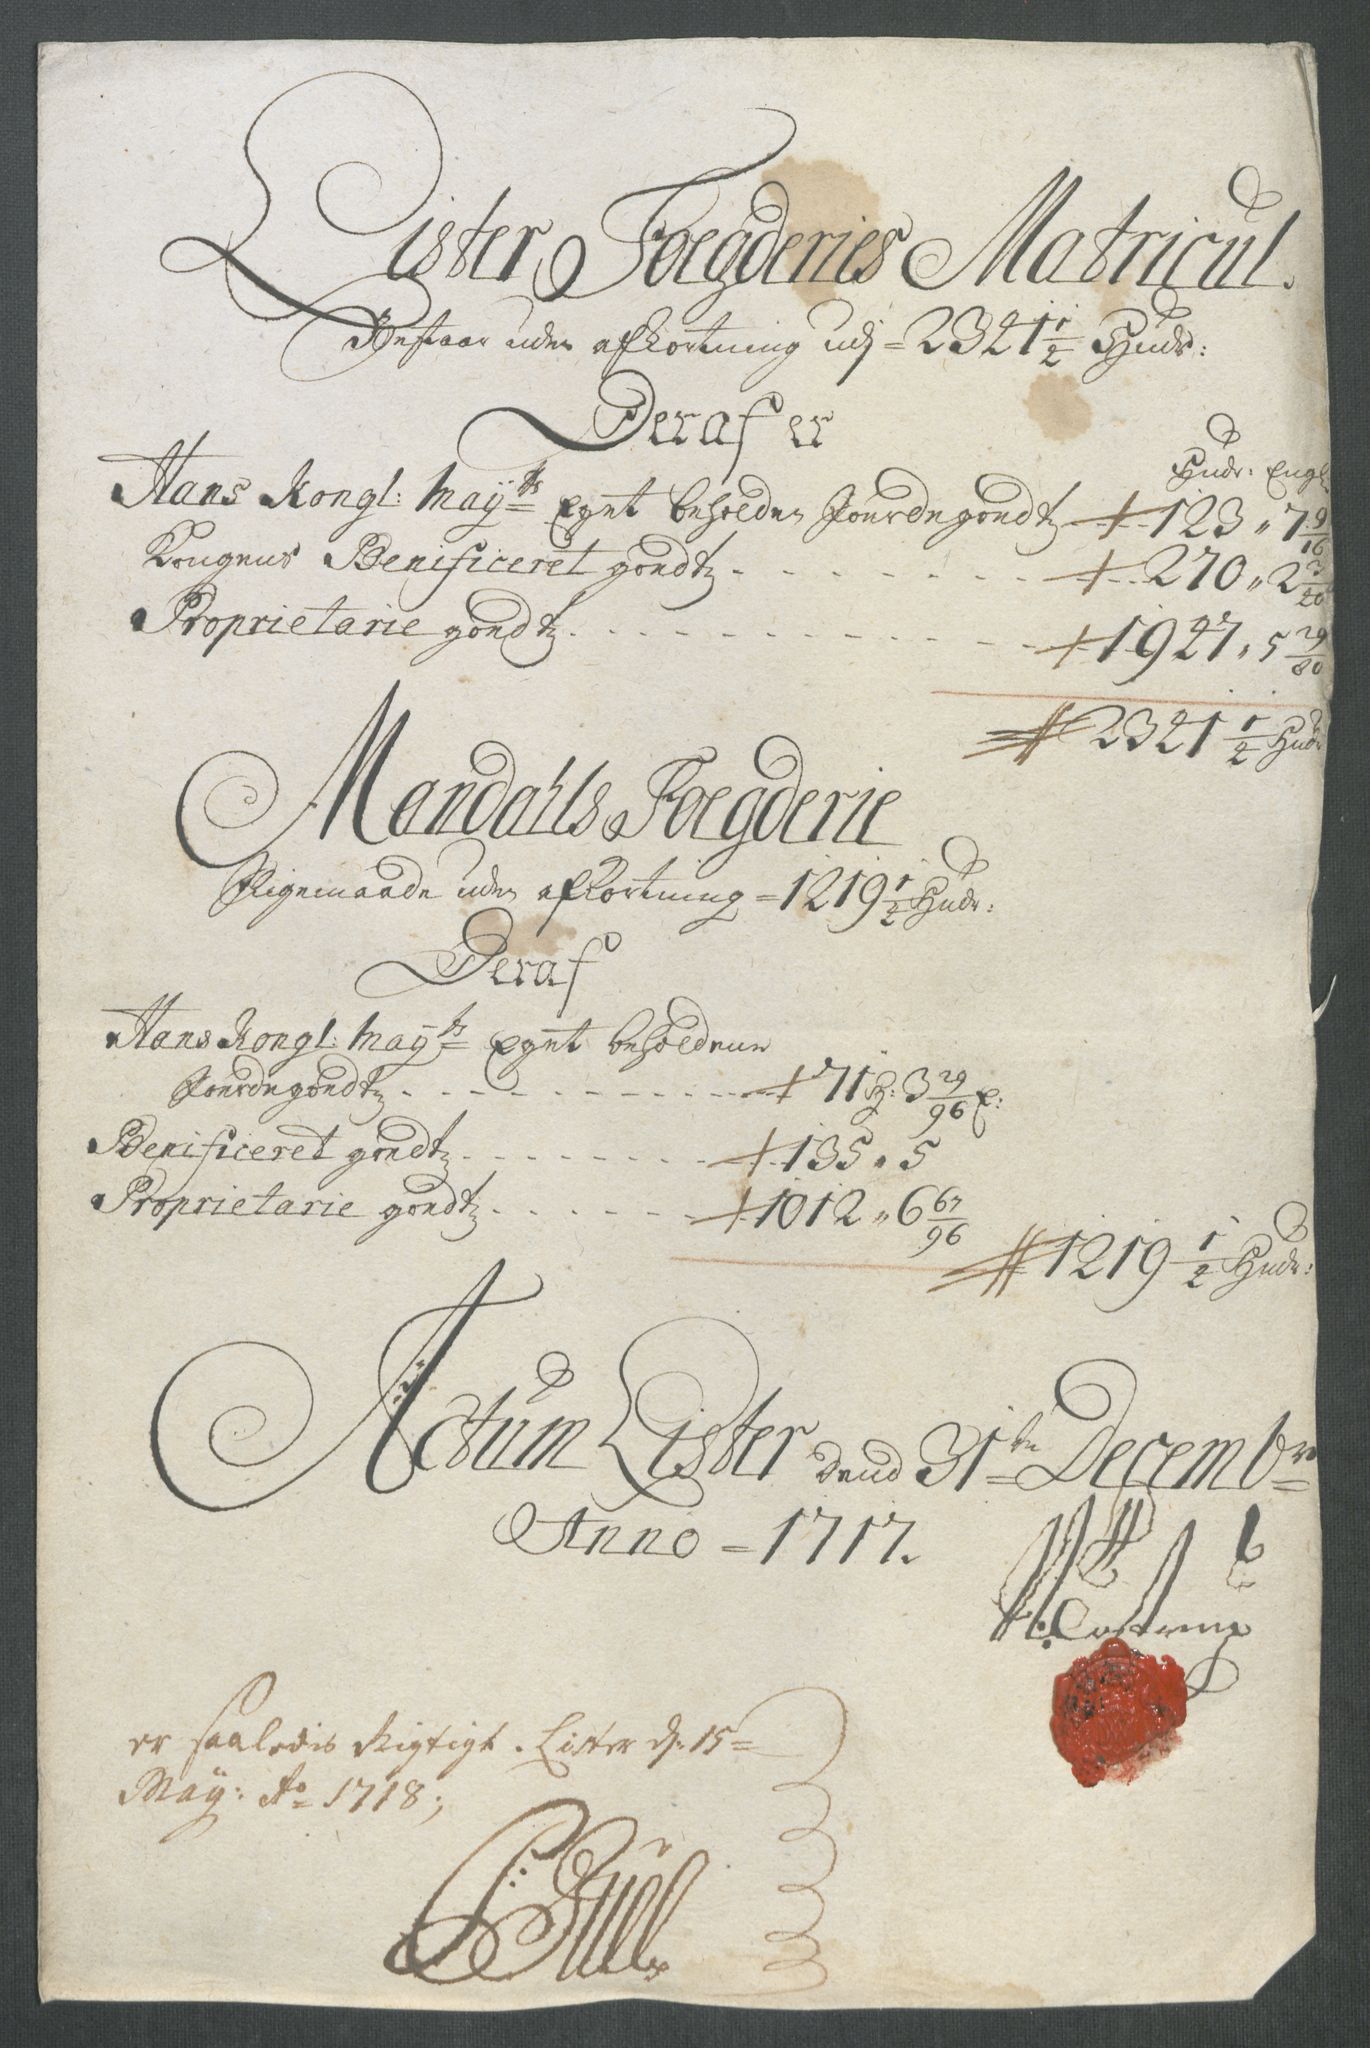 Lister Foegderies Matricul.
Bestaar uden afkortning udj = 2321 1/2 Hudr:
Deraf er
Hudr: Engl
Hans Kongl: Maytts Eget beholden Jourdegondtz 123 „ 7 9/16
Kongens Benificeret gondtz 270 „ 2 3/20
Proprietarie gondtz 1927 „ 5 29/80
2321 1/2 Hudr
Mandahls Foegderie
Ligemaade uden afkortning = 1219 1/2 Hudr:
Deraf
Hans Kongl: Maytts Eget beholdenne
Jourdegondtz 71 H: 3 29/96 E:
Benificeret gondtz 135 „ 5
Proprietarie gondtz 1012 „ 6 67/96
1219 1/2 Hudr:
Actum Lister dend 31te Decembr
Anno = 1717.
er saaledis Rigtigt. Lister d: 15
May: Ao 1718;